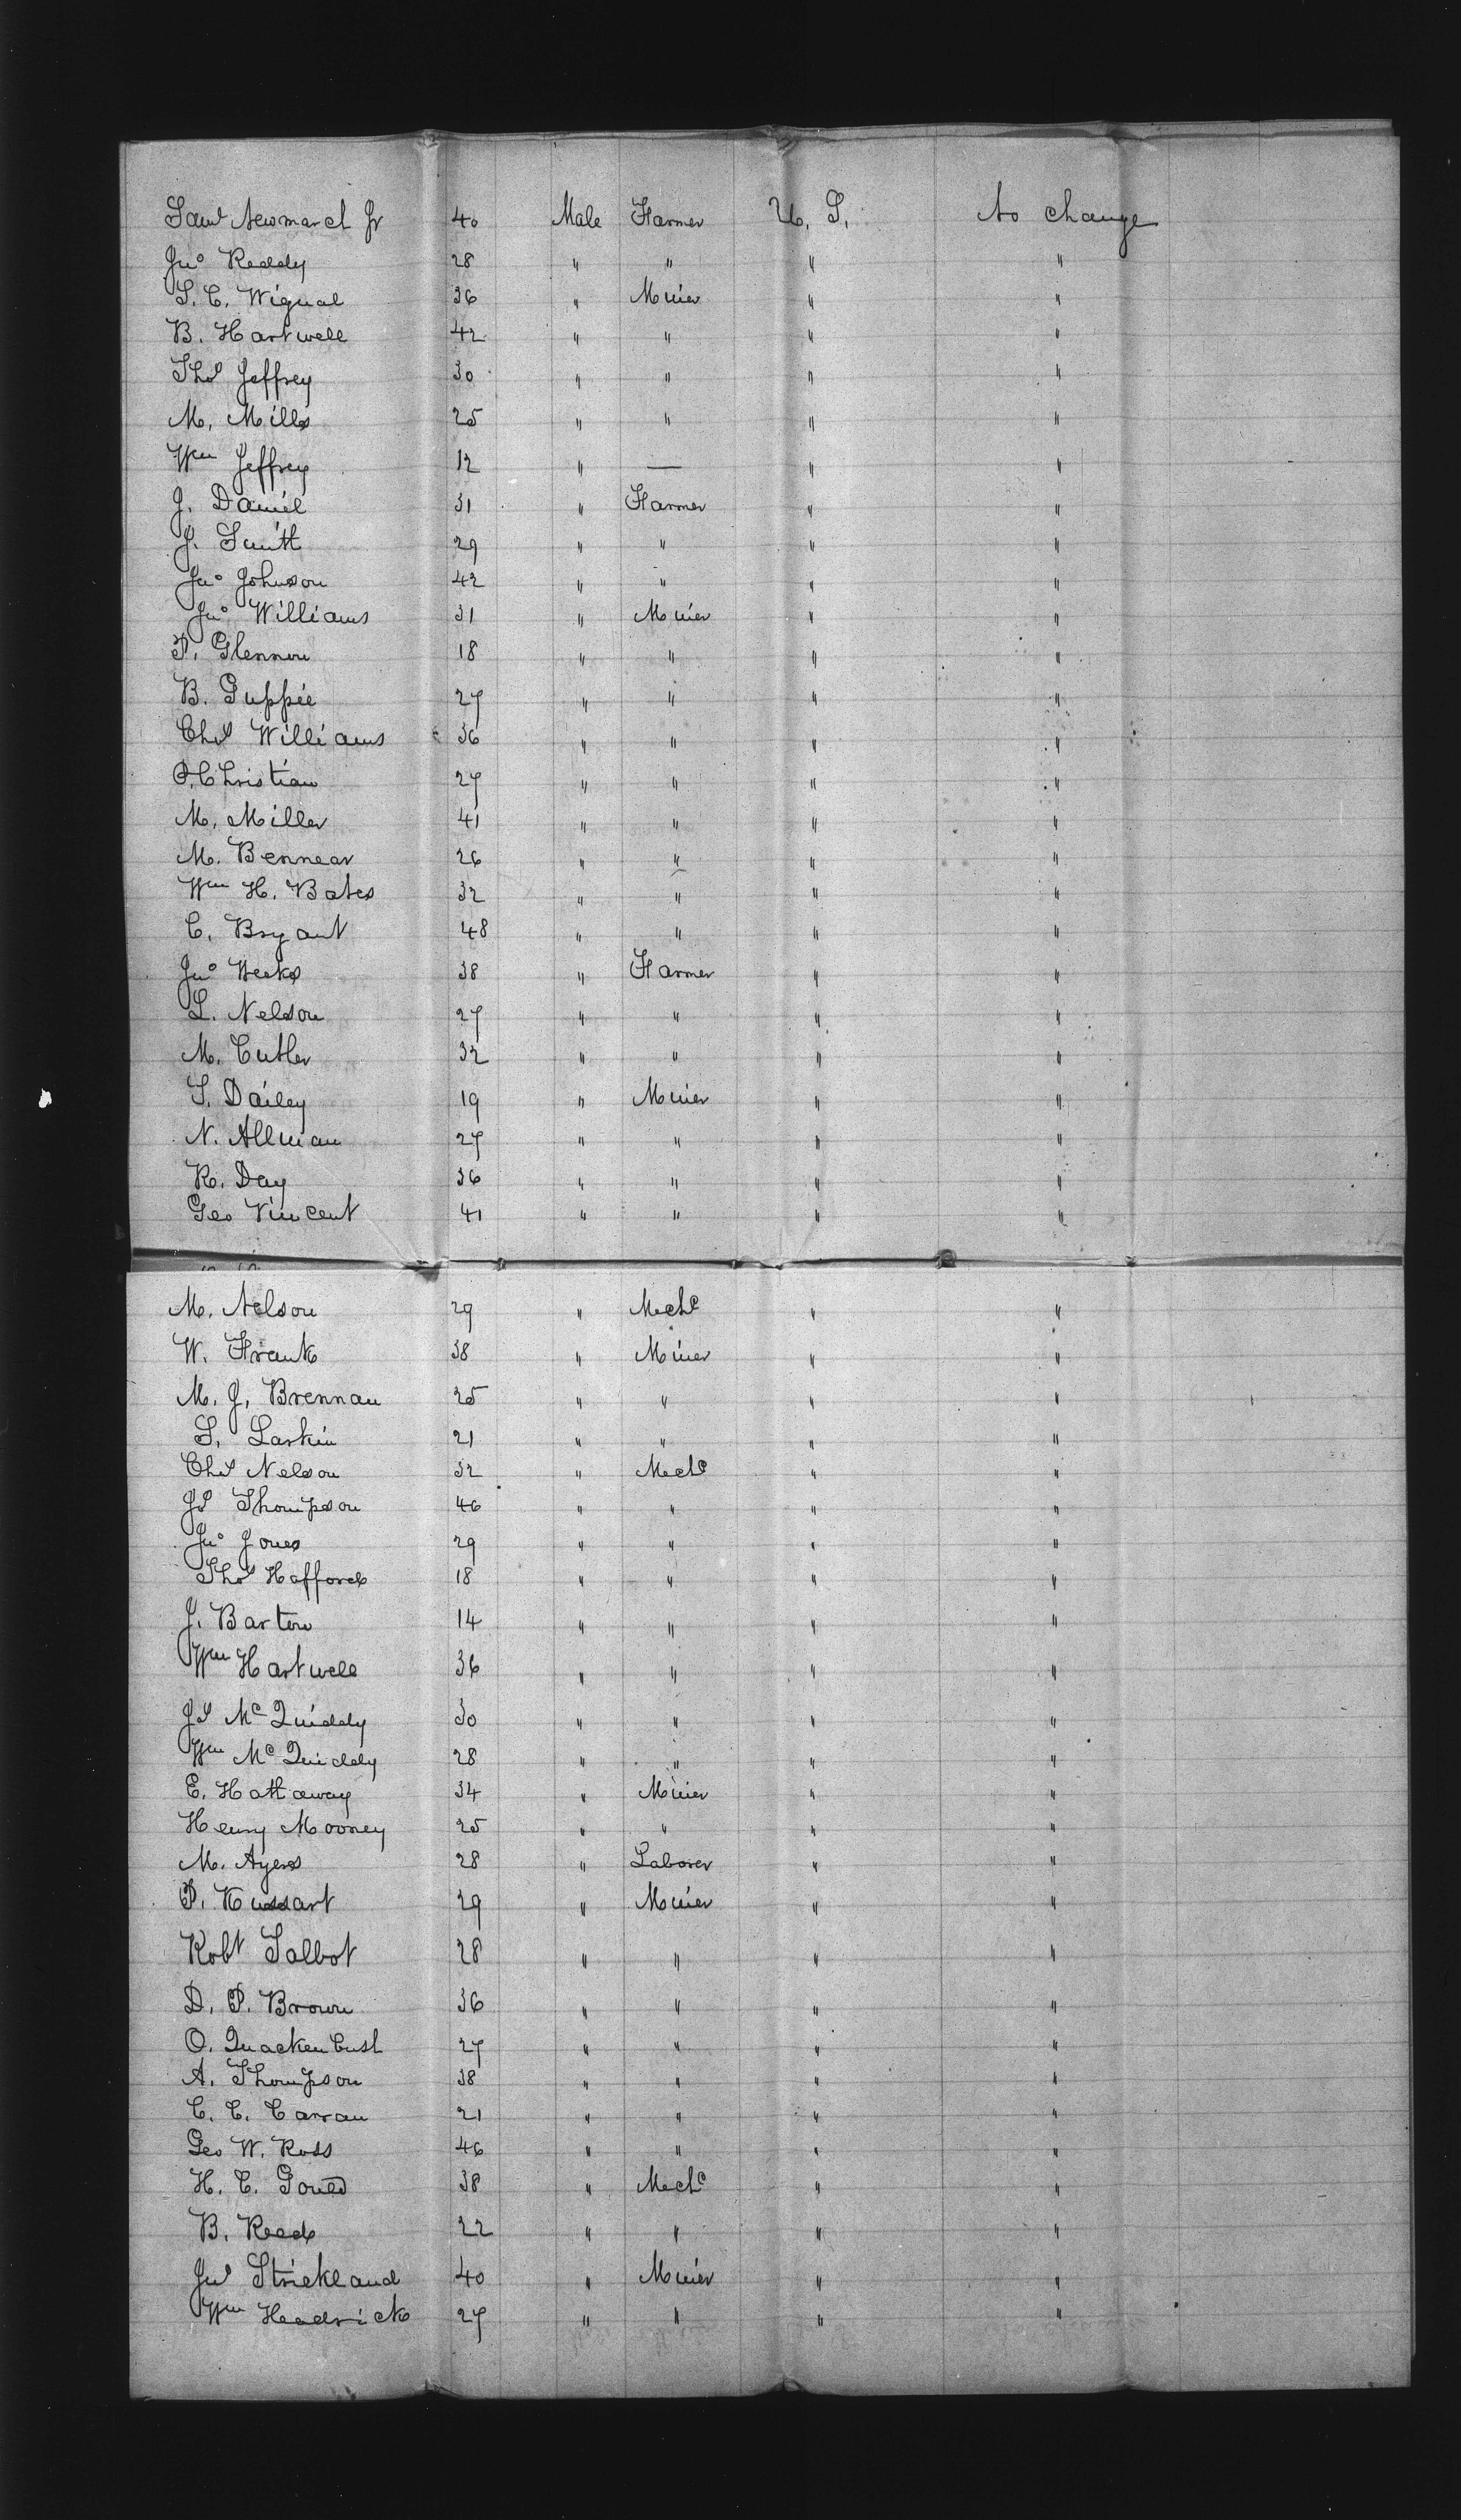 Saml Newmarch Jr 40 Male Farmer U. S. No change
Jno Reddy 28 " " " "
S. C. Wignal 36 " Miner " "
B. Hartwell 42 " " " "
Thos Jeffrey 30 " " " "
M. Mills 25 " " " "
Wm Jeffrey 12 " — " "
J. Daniel 31 " Farmer " "
J. Smith 29 " " " "
Jno Johnson 42 " " " "
Jno Williams 31 " Miner " "
P. Glennon 18 " " " "
B. Guppie 27 " " " "
Chs Williams 36 " " " "
P. Christian 27 " " " "
M. Miller 41 " " " "
M. Bennear 26 " " " "
Wm H. Bates 32 " " " "
C. Bryant 48 " " " "
Jno Weeks 38 " Farmer " "
L. Nelson 27 " " " "
M. Cutler 32 " " " "
S. Dailey 19 " Miner " "
N. Allman 27 " " " "
R. Day 36 " " " "
Geo Vincent 41 " " " "
M. Nelson 29 " Mechc " "
W. Frank 38 " Miner " "
M. J. Brennan 25 " " " "
S. Larkin 21 " " " "
Chs Nelson 32 " Mechc " "
Js Thompson 46 " " " "
Jno Jones 29 " " " "
Thos Hafford 18 " " " "
J. Barton 14 " " " "
Wm Hartwell 36 " " " "
Js McQuiddy 30 " " " "
Wm McQuiddy 28 " " " "
E. Hathaway 34 " Miner " "
Henry Mooney 25 " " " "
M. Ayers 28 " Laborer " "
P. Kussart 29 " Miner " "
Robt Talbot 28 " " " "
D. P. Brown 36 " " " "
O. Quackenbush 27 " " " "
A. Thompson 38 " " " "
C. C. Carran 21 " " " "
Geo W. Ross 46 " " " "
H. C. Gould 38 " Mechc " "
B. Reed 22 " " " "
Jas Strickland 40 " Miner " "
Wm Headrick 27 " " " "